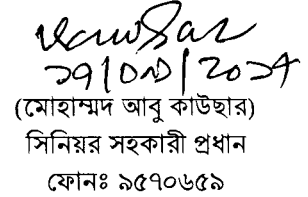 ১৭/০৯/২০১৭
(মোহাম্মদ আবু কাউছার)
সিনিয়র সহকারী প্রধান
ফোনঃ ৯৫৭০৬৫৯